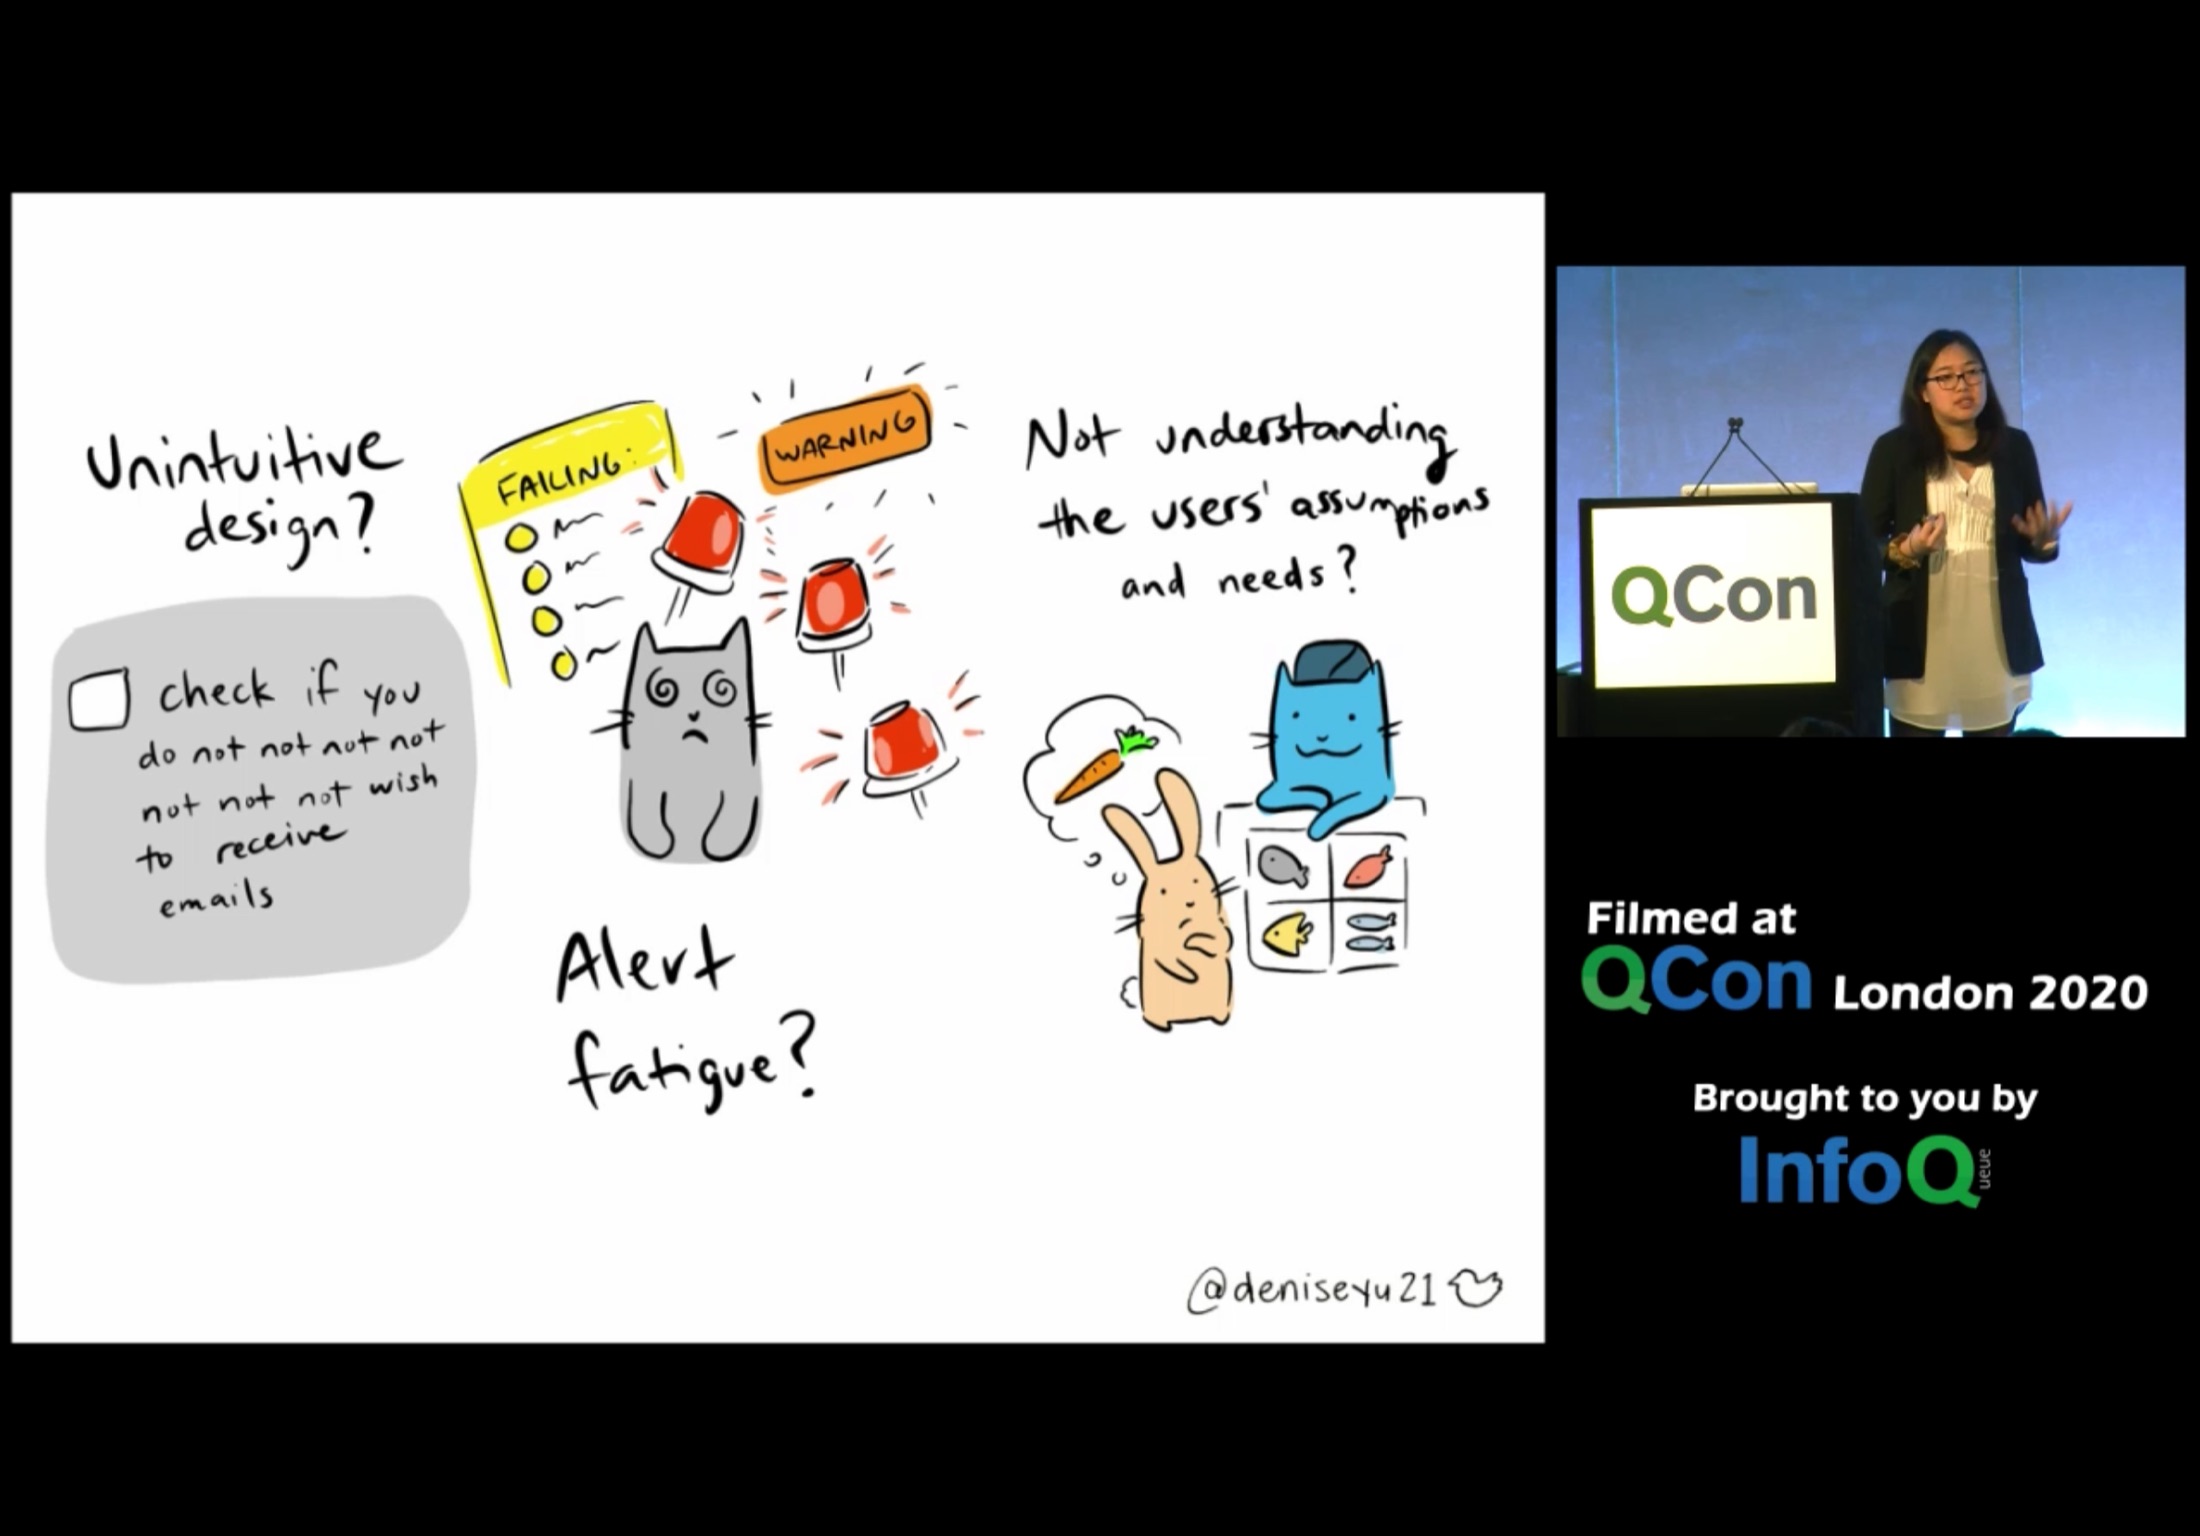 Unintuitive
design?
check if you
do not not not not
not not not wish
to receive
emails
FAILING:
WARNING
Alert
fatigue?
Not understanding
the users' assumptions
and needs?
@deniseyu21
QCon
Filmed at
QCon London 2020
Brought to you by
InfoQ
ueue